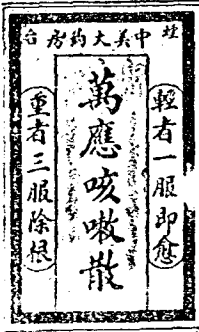 中美大药房 台
輕者一服即愈
萬應咳嗽散
重者三服除根